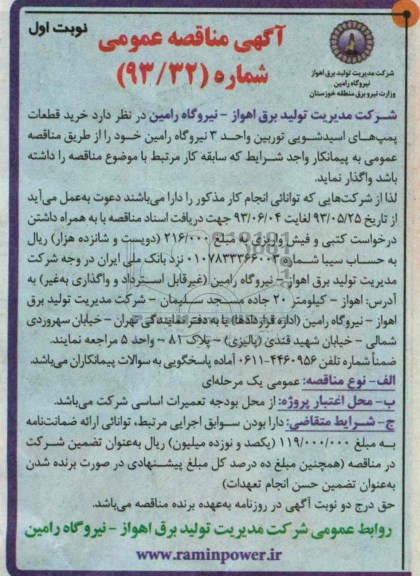 نوبت اول
آگهی مناقصه عمومی
شماره (۹۳/۳۲)
شرکت مدیریت تولید برق اهواز
نیروگاه رامین
وزارت نیرو برق منطقه خوزستان
شرکت مدیریت تولید برق اهواز - نیروگاه رامین در نظر دارد خرید قطعات
پمپ‌های اسیدشویی توربین واحد ۳ نیروگاه رامین خود را از طریق مناقصه
عمومی به پیمانکار واجد شرایط که سابقه کار مرتبط با موضوع مناقصه را داشته
باشد واگذار نماید.
لذا از شرکت‌هایی که توانائی انجام کار مذکور را دارا می‌باشند دعوت به‌عمل می‌آید
از تاریخ ۹۳/۰۵/۲۵ لغایت ۹۳/۰۶/۰۴ جهت دریافت اسناد مناقصه با به همراه داشتن
درخواست کتبی و فیش واریزی به مبلغ ۲۱۶/۰۰۰ (دویست و شانزده هزار) ریال
به حساب سیبا شماره ۰۱۰۷۸۳۳۳۶۶۰۰۳ نزد بانک ملی ایران در وجه شرکت
مدیریت تولید برق اهواز - نیروگاه رامین (غیرقابل استرداد و واگذاری به‌غیر) به
آدرس: اهواز - کیلومتر ۲۰ جاده مسجد سلیمان - شرکت مدیریت تولید برق
اهواز - نیروگاه رامین (اداره قراردادها) یا به دفتر نمایندگی تهران - خیابان سهروردی
شمالی - خیابان شهید قندی (پالیزی) - پلاک ۸۱ - واحد ۵ مراجعه نمایند.
ضمناً شماره تلفن ۴۴۶۰۹۵۶-۰۶۱۱ آماده پاسخگویی به سوالات پیمانکاران می‌باشد.
الف- نوع مناقصه: عمومی یک مرحله‌ای
ب- محل اعتبار پروژه: از محل بودجه تعمیرات اساسی شرکت می‌باشد.
ج- شرایط متقاضی: دارا بودن سوابق اجرایی مرتبط، توانائی ارائه ضمانت‌نامه
به مبلغ ۱۱۹/۰۰۰/۰۰۰ (یکصد و نوزده میلیون) ریال به‌عنوان تضمین شرکت
در مناقصه (همچنین مبلغ ده درصد کل مبلغ پیشنهادی در صورت برنده شدن
به‌عنوان تضمین حسن انجام تعهدات)
حق درج دو نوبت آگهی در روزنامه به‌عهده برنده مناقصه می‌باشد.
روابط عمومی شرکت مدیریت تولید برق اهواز - نیروگاه رامین
www.raminpower.ir